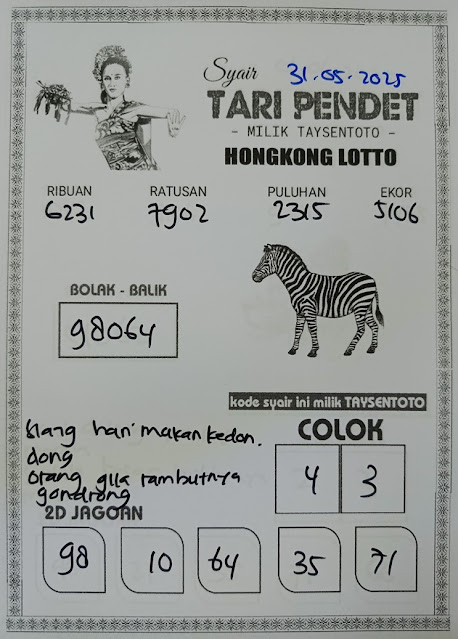 Syair 31.05.2025
TARI PENDET
- MILIK TAYSENTOTO -
HONGKONG LOTTO
RIBUAN RATUSAN PULUHAN EKOR
6231 7902 2315 5106
BOLAK - BALIK
98064
kode syair ini milik TAYSENTOTO
COLOK
4 3
siang hari makan kedon.
dong
orang gila rambutnya
gondrong
2D JAGOAN
98 10 64 35 71